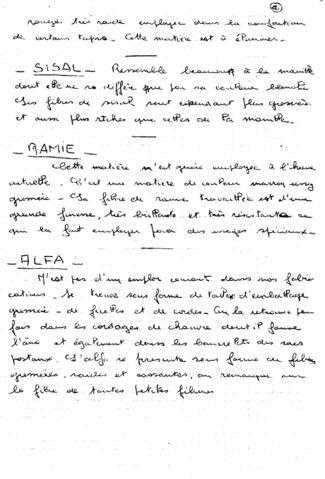 rouge très raide employée dans la confection
de certains tapis. Cette matière est à éliminer.
_ SISAL _ Ressemble beaucoup à la manille
dont elle ne se diffère que par sa couleur blanche
Les fibres de sisal sont cependant plus grossières
et aussi plus rêches que celles de la manille.
_ RAMIE _
Cette matière n'est guère employée à l'heure
actuelle. C'est une matière de couleur marron assez
grossière. La fibre de ramie travaillée est d'une
grande finesse, très brillante et très résistante ce
qui la fait employer pour des usages spéciaux.
_ ALFA _
N'est pas d'un emploi courant dans nos fabri
cations. Se trouve sous forme de d'emballage
grossière - de ficelles et de cordes. On la retrouve par
fois dans les cordages de chanvre dont il forme
l'âme et également dans les des sacs
postaux. L'alfa se présente sous forme de fibres
grossières, raides et cassantes, on remarque sur
la fibre de toutes petites fibrilles